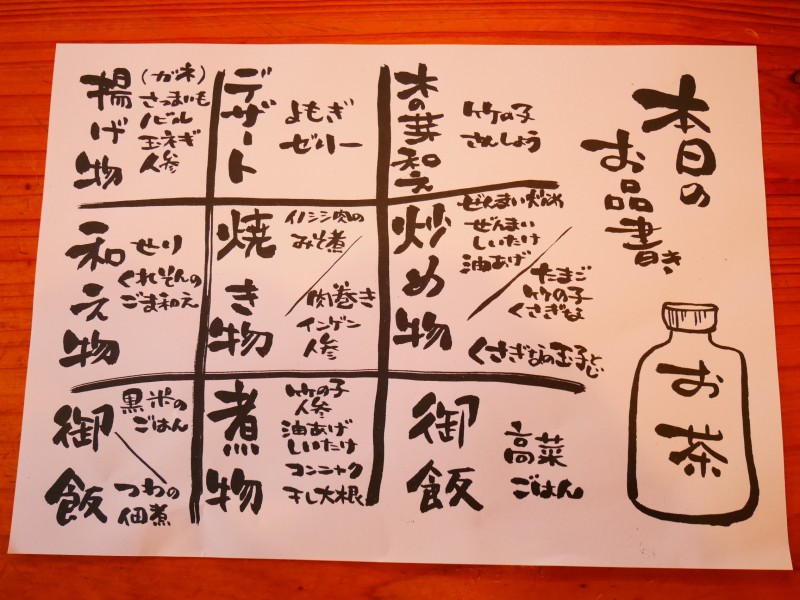 本日の
お品書き
お茶
木の芽和え
竹の子
さんしょう
デザート
よもぎ
ゼリー
揚げ物
(ガネ)
さつまいも
ノビル
玉ネギ
人参
炒め物
ぜんまい炒め
ぜんまい
しいたけ
油あげ
たまご
竹の子
くさぎな
くさぎなの玉子とじ
焼き物
イノシシ肉の
みそ煮
肉巻き
インゲン
人参
和え物
せり
くれそんの
ごま和え
御飯
高菜
ごはん
煮物
竹の子
人参
油あげ
しいたけ
コンニャク
干し大根
御飯
黒米の
ごはん
つわの
佃煮